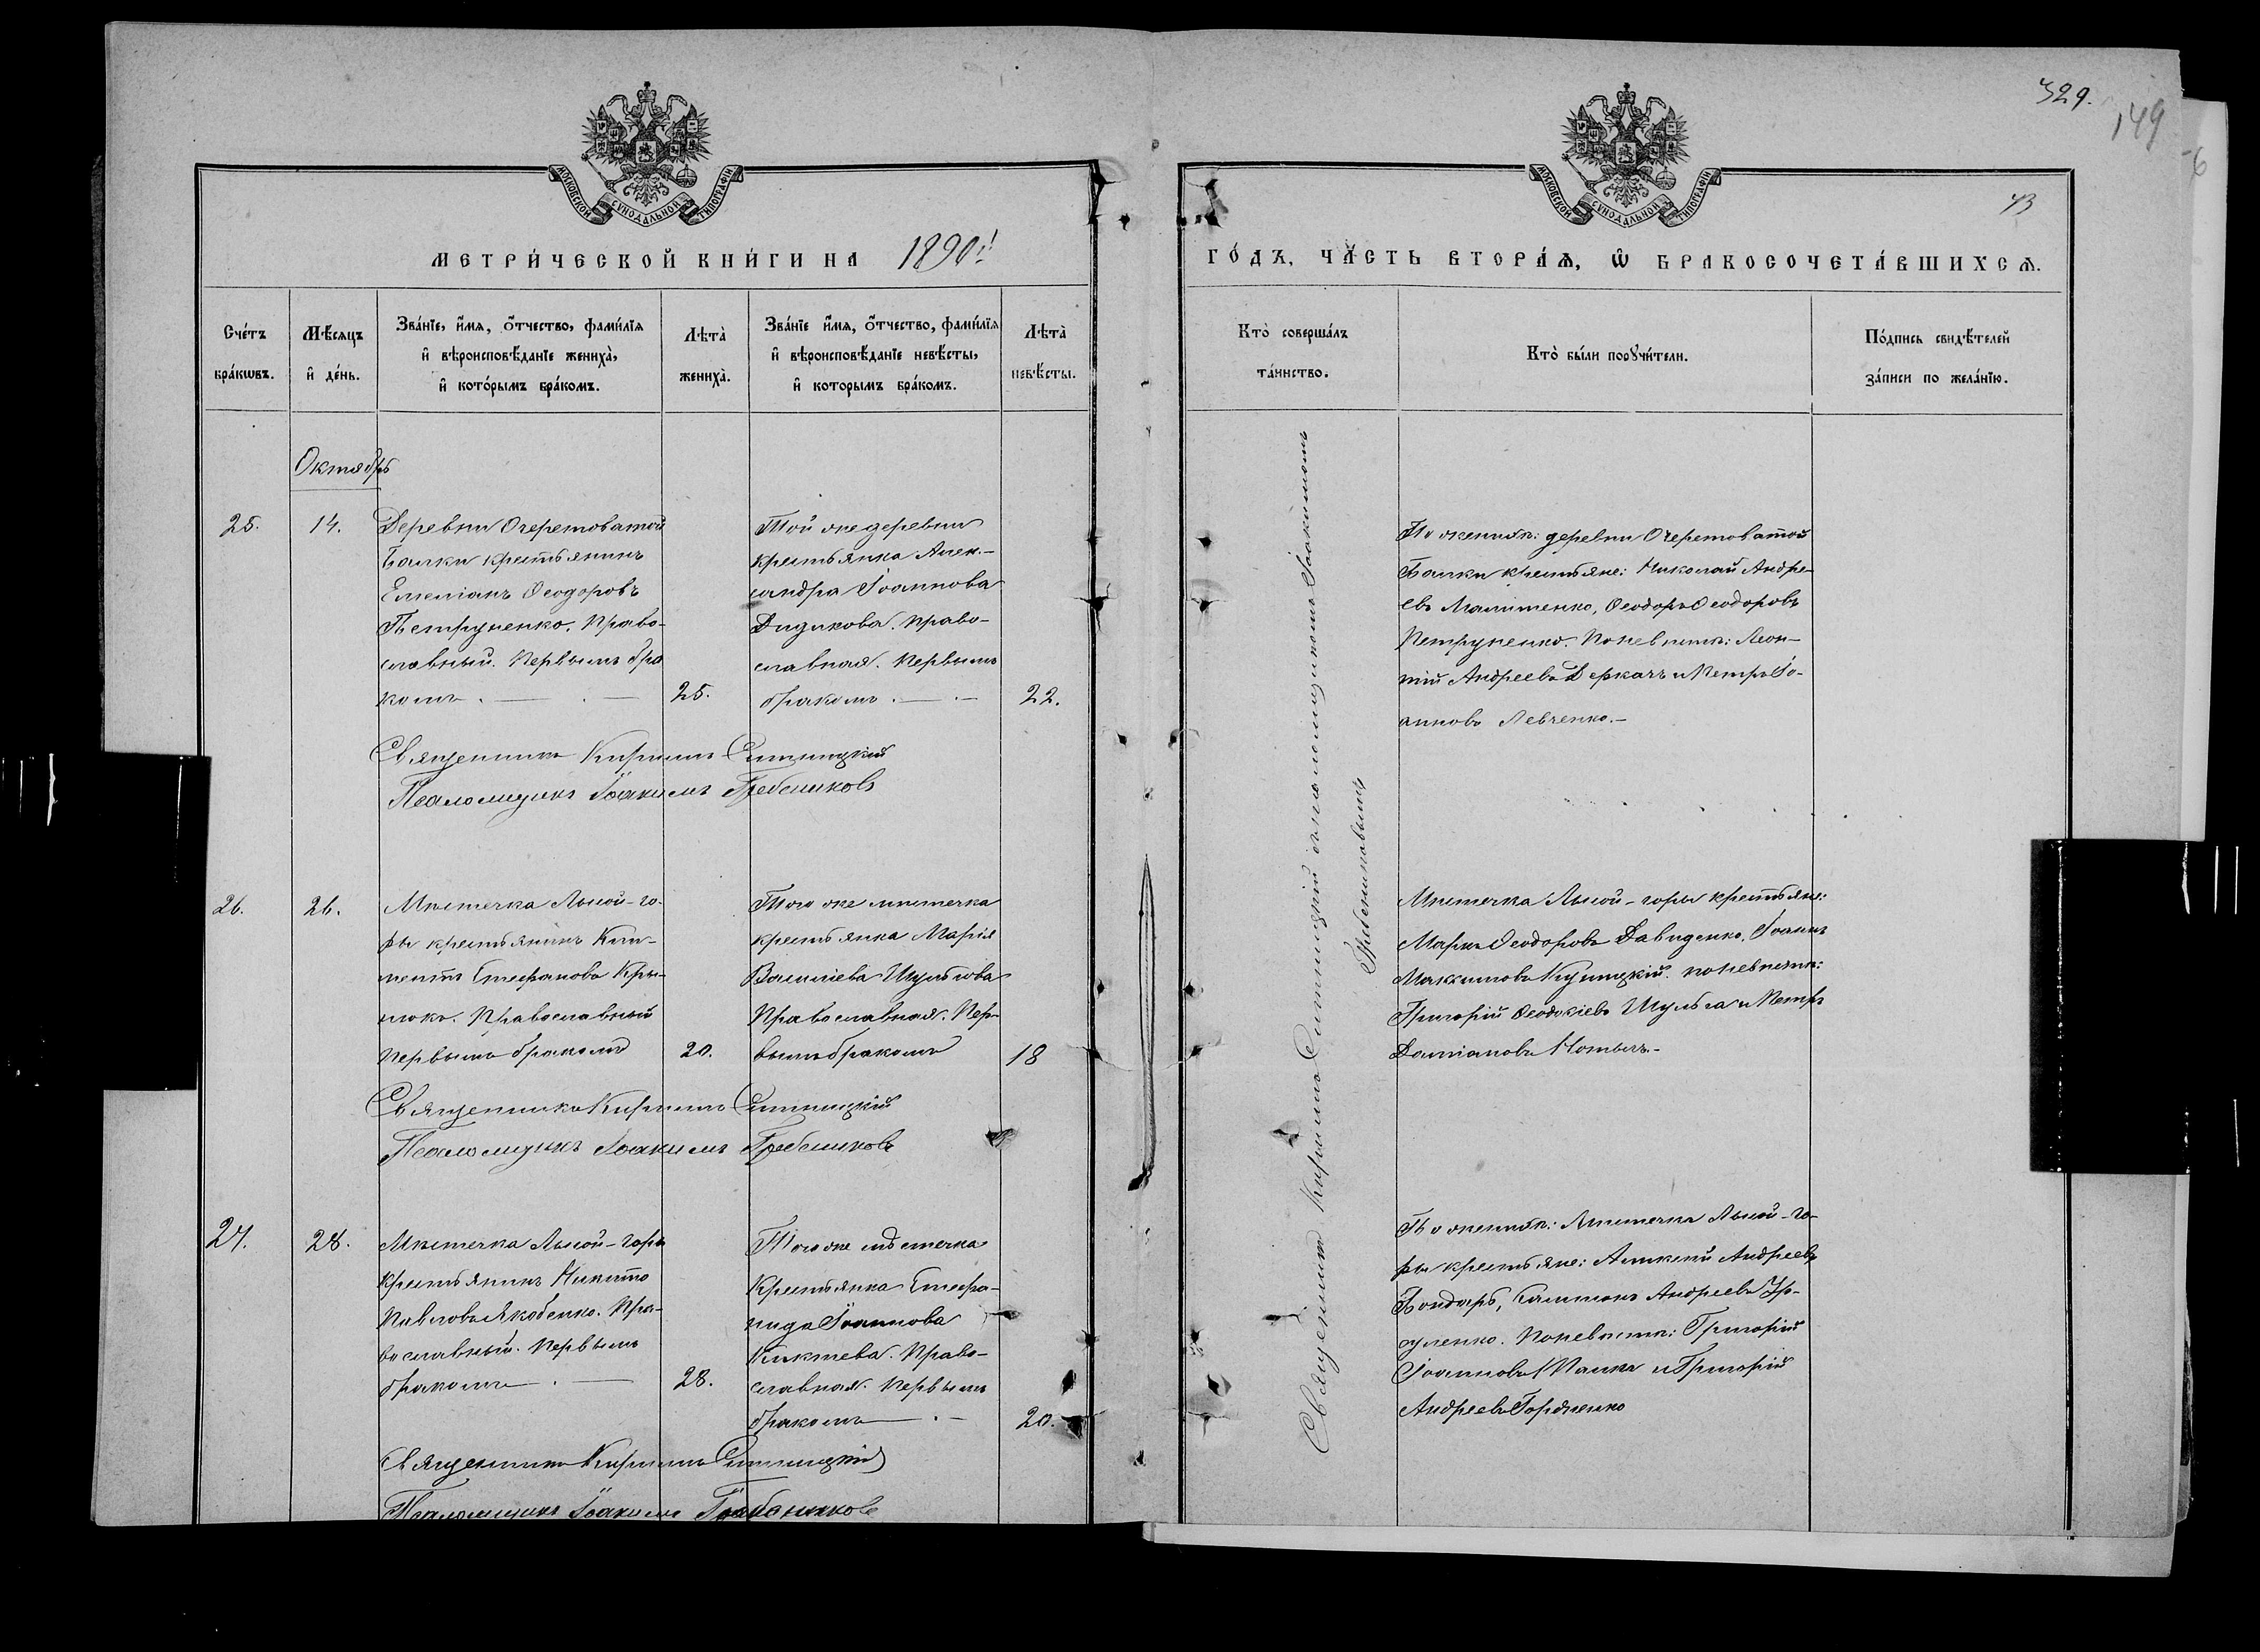 329.
149
6
43
МОСКОВСКОЙ СѴНОДАЛЬНОЙ ТИПОГРАФІИ
МОСКОВСКОЙ СѴНОДАЛЬНОЙ ТИПОГРАФІИ
МЕТРИ́ЧЕСКОЙ КНИ́ГИ НА 1890й
ГО́ДЪ, ЧА́СТЬ ВТОРА́Ѧ, Ѽ БРАКОСОЧЕТА́ВШИХСѦ.
Сче́тъ бра́кωвъ.
Мѣ́сяцъ и҆ де́нь.
Зва́нїе, и҆́мя, о҆́тчество, фами́лїя
и҆ вѣроисповѣ́данїе жениха̀,
и҆ кото́рымъ бра́комъ.
Лѣта̀ жениха̀.
Зва́нїе и҆́мя, о҆́тчество, фами́лїя
и҆ вѣроисповѣ́данїе невѣ́сты,
и҆ которымъ бра́комъ.
Лѣта̀ невѣ́сты.
Кто̀ соверша́лъ та́инство.
Кто̀ бы́ли порꙋчи́тели.
По́дпись свидѣ́телей
за́писи по жела́нїю.
Октябрь
25.
14.
Деревни Очеретоватой
Балки крестьянинъ
Емеліанъ Ѳеодоровъ
Петруненко. Право-
славный. Первымъ бра
комъ. — . —
25.
Той же деревни
крестьянка Алек-
сандра Іоаннова
Дидикова. Право-
славная. Первымъ
бракомъ. — . —
22.
По женихѣ: деревни Очеретоватой
Балки крестьяне: Николай Андре-
евъ Малитенко, Ѳеодоръ Ѳеодоровъ
Петруненко. По невѣстѣ: Леон-
тій Андреевъ Деркачъ и Петръ Іо-
анновъ Левченко.—
Священникъ Кириллъ Ситницкій
Псаломщикъ Іоакимъ Гребениковъ
26.
26.
Мѣстечка Лысой-го-
ры крестьянинъ Кли-
ментъ Стефановъ Кры-
люкъ. Православный
Первымъ бракомъ
20.
Того же мѣстечка
крестьянка Марія
Василіева Шульгова
Православная. Пер-
вымъ бракомъ
18
Мѣстечка Лысой-горы крестьяне:
Маркъ Ѳеодоровъ Давиденко, Іоаннъ
Максимовъ по невѣстѣ:
Григорій Ѳеодосіевъ Шульга и Петръ
Даміановъ
Священникъ Кириллъ Ситницкій
Псаломщикъ Іоакимъ Гребениковъ
27.
28.
Мѣстечка Лысой-горы
Крестьянинъ Никита
Павловъ Якобенко. Пра-
вославный. Первымъ
бракомъ . —
28.
Того же мѣстечка
Крестьянка Стефа-
нида Іоаннова
Киктева. Право-
славная. Первымъ
бракомъ — . —
20.
По женихѣ: Мѣстечка Лысой-го-
ры крестьяне: Алексій Андреевъ
Бондарь, Андреевъ
По невѣстѣ: Григорій
Іоанновъ и Григорій
Андреевъ Гордіенко
Священникъ Кириллъ Ситницкій
Псаломщикъ Іоакимъ Гребениковъ
Священникъ Кириллъ Ситницкій съ псаломщикомъ Іоакимомъ
Гребениковымъ